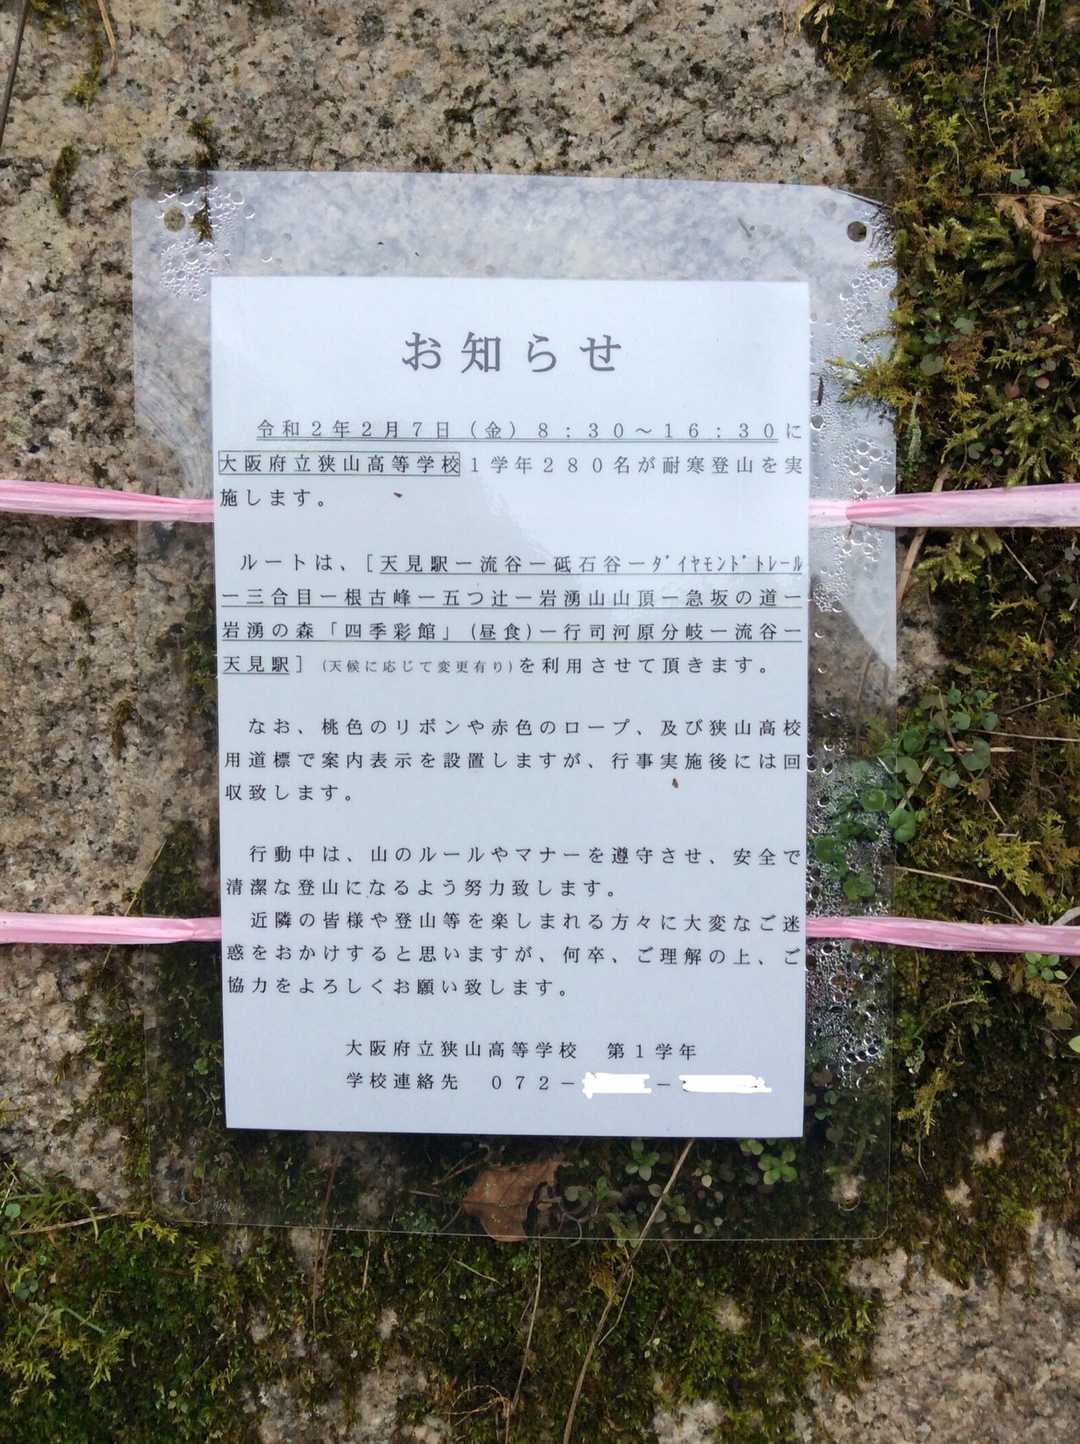 お知らせ
令和２年２月７日（金）８：３０～１６：３０に
大阪府立狭山高等学校１学年２８０名が耐寒登山を実
施します。
ルートは、［天見駅ー流谷ー砥石谷ーﾀﾞｲﾔﾓﾝﾄﾞﾄﾚｰﾙ
ー三合目ー根古峰ー五つ辻ー岩湧山山頂ー急坂の道ー
岩湧の森「四季彩館」(昼食)ー行司河原分岐ー流谷ー
天見駅］(天候に応じて変更有り)を利用させて頂きます。
なお、桃色のリボンや赤色のロープ、及び狭山高校
用道標で案内表示を設置しますが、行事実施後には回
収致します。
行動中は、山のルールやマナーを遵守させ、安全で
清潔な登山になるよう努力致します。
近隣の皆様や登山等を楽しまれる方々に大変なご迷
惑をおかけすると思いますが、何卒、ご理解の上、ご
協力をよろしくお願い致します。
大阪府立狭山高等学校　第１学年
学校連絡先　０７２－　－